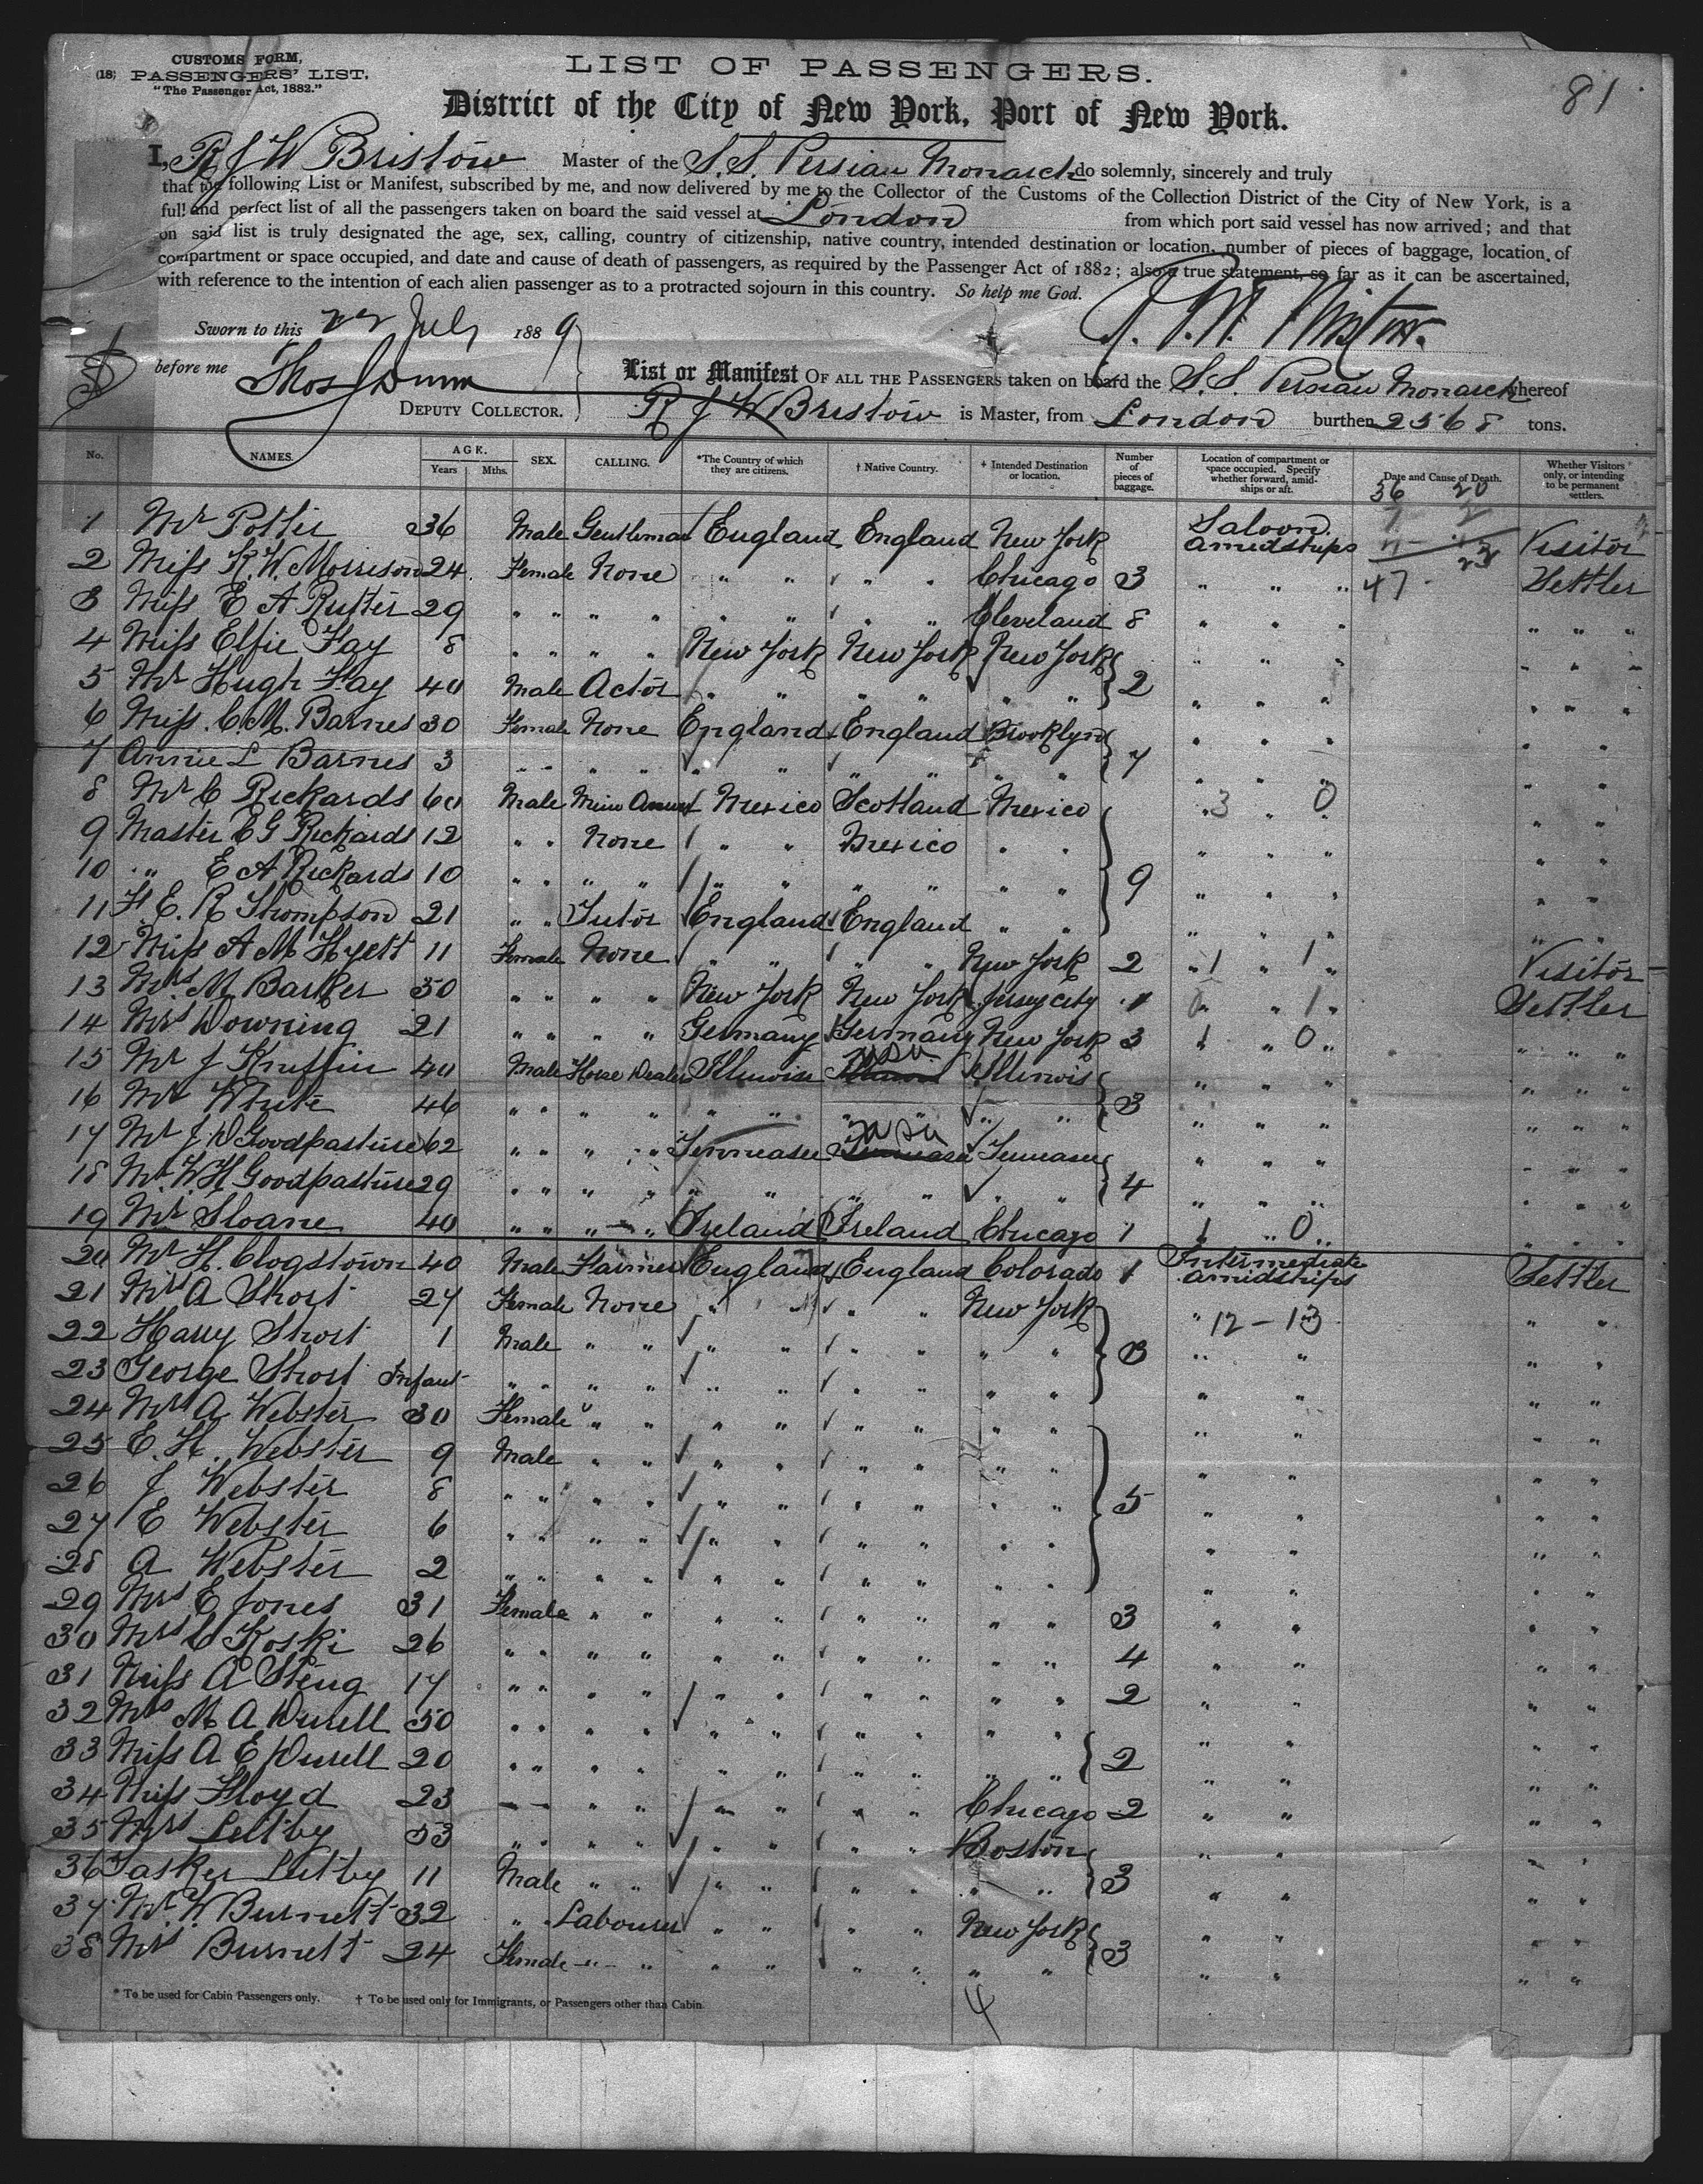 CUSTOMS FORM,
(18) PASSENGERS' LIST.
"The Passenger Act, 1882."
LIST OF PASSENGERS.
81
District of the City of New York, Port of New York.
I, R J W Bristow Master of the S.S. Persian Monarch do solemnly, sincerely and truly
that the following List or Manifest, subscribed by me, and now delivered by me to the Collector of the Customs of the Collection District of the City of New York, is a
full and perfect list of all the passengers taken on board the said vessel at London from which port said vessel has now arrived; and that
on said list is truly designated the age, sex, calling, country of citizenship, native country, intended destination or location, number of pieces of baggage, location of
compartment or space occupied, and date and cause of death of passengers, as required by the Passenger Act of 1882; also a true statement, so far as it can be ascertained,
with reference to the intention of each alien passenger as to a protracted sojourn in this country. So help me God.
Sworn to this July 1889
before me Thos Dunn
DEPUTY COLLECTOR.
List or Manifest OF ALL THE PASSENGERS taken on board the S.S. Persian Monarch whereof
R J W Bristow is Master, from London burthen 2568 tons.
No. NAMES. AGE. Years Mths. SEX. CALLING. *The Country of which they are citizens. † Native Country. + Intended Destination or location. Number of pieces of baggage. Location of compartment or space occupied. Specify whether forward, amidships or aft. Date and Cause of Death. Whether Visitors only, or intending to be permanent settlers.
36 20
1 Mr Potter 36 Male Gentleman England England New York Saloon amidships Visitor
2 Miss K. W. Morrison 24 Female None " " " " Chicago 3 " " " 47 23 Settler
3 Miss E A Rutter 29 " " " " " " " " Cleveland 8 " " " " " "
4 Miss Elfie Fay 8 " " " " New York New York New York " " " " " "
5 Mr Hugh Fay 40 Male Actor " " " " " " 2 " " " " " "
6 Miss C. M. Barnes 30 Female None England England Brooklyn " " " " "
7 Annie L Barnes 3 " " " " " " " " " " 7 " " " " "
8 Mr C Rickards 60 Male Mexico Scotland Mexico 3 0 " "
9 Master E G Rickards 12 " " None " " Mexico " " " " " " "
10 " E A Rickards 10 " " " " " " " " " " 9 " " " " "
11 F E. R Thompson 21 " " Tutor England England " " " " " " "
12 Miss A M Hyett 11 Female None " " " " New York 2 " 1 " 1 " Visitor
13 Mrs M Barker 50 " " " " New York New York Jersey City 1 " 1 " Settler
14 Mrs Downing 21 " " " " Germany Germany New York 3 1 " 0 " " " "
15 Mr J Knuffin 40 Male Horse Dealer Illinois USA Illinois " " " " " "
16 Mr White 46 " " " " " " " " " " 3 " " " " " "
17 Mr J D Goodpasture 62 " " " " Tennessee USA Tennessee " " " " " "
18 Mr W H Goodpasture 29 " " " " " " " " " " 4 " " " " " "
19 Mr Sloane 40 " " " " Ireland Ireland Chicago 1 1 " 0 " " " "
20 Mr H. Clogstown 40 Male Farmer England England Colorado 1 Intermediate amidships Settler
21 Mrs A Short 27 Female None " " " " New York " 12 - 13 " "
22 Harry Short 1 Male " " " " " " " " 3 " " " "
23 George Short Infant " " " " " " " " " " " " " "
24 Mrs A Webster 30 Female " " " " " " " " " " " "
25 E. H. Webster 9 Male " " " " " " " " " " " "
26 J Webster 8 " " " " " " " " " " 5 " " " "
27 E Webster 6 " " " " " " " " " " " " " "
28 A Webster 2 " " " " " " " " " " " " " "
29 Mrs E Jones 31 Female " " " " " " " " 3 " " " "
30 Mrs C Koski 26 " " " " " " " " " " 4 " " " "
31 Miss A Steug 17 " " " " " " " " " " 2 " " " "
32 Mrs M A Durell 50 " " " " " " " " " " " " " "
33 Miss A E Durell 20 " " " " " " " " " " 2 " " " "
34 Miss Floyd 23 " " " " " " " " Chicago 2 " " " "
35 Mrs Leltby 53 " " " " " " " " Boston " " " "
36 Tasker Leltby 11 Male " " " " " " " " 3 " " " "
37 Mr W Burnett 32 " " Labourer " " " " New York " " " "
38 Mrs Burnett 24 Female " " " " " " " " 3 " " " "
* To be used for Cabin Passengers only. † To be used only for Immigrants, or Passengers other than Cabin.